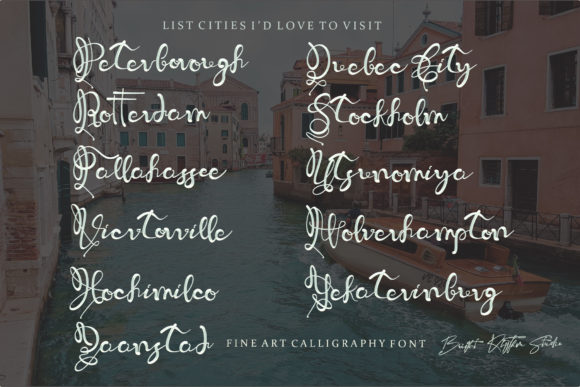 LIST CITIES I'D LOVE TO VISIT
Peterborough
Quebec City
Rotterdam
Stockholm
Tallahassee
Utsunomiya
Victorville
Wolverhampton
Xochimilco
Yekaterinburg
Zaanstad
FINE ART CALLIGRAPHY FONT
Rhythm Studio